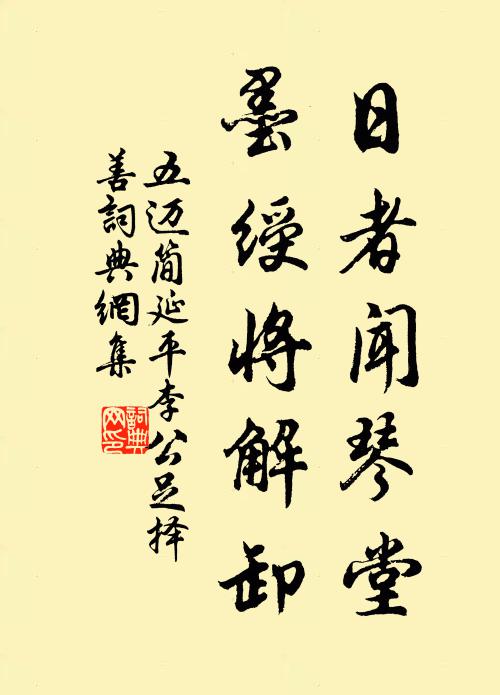 日者闻琴堂
墨绶将解卸
五迈简延平李公足择
善詞典網集
詞典网印